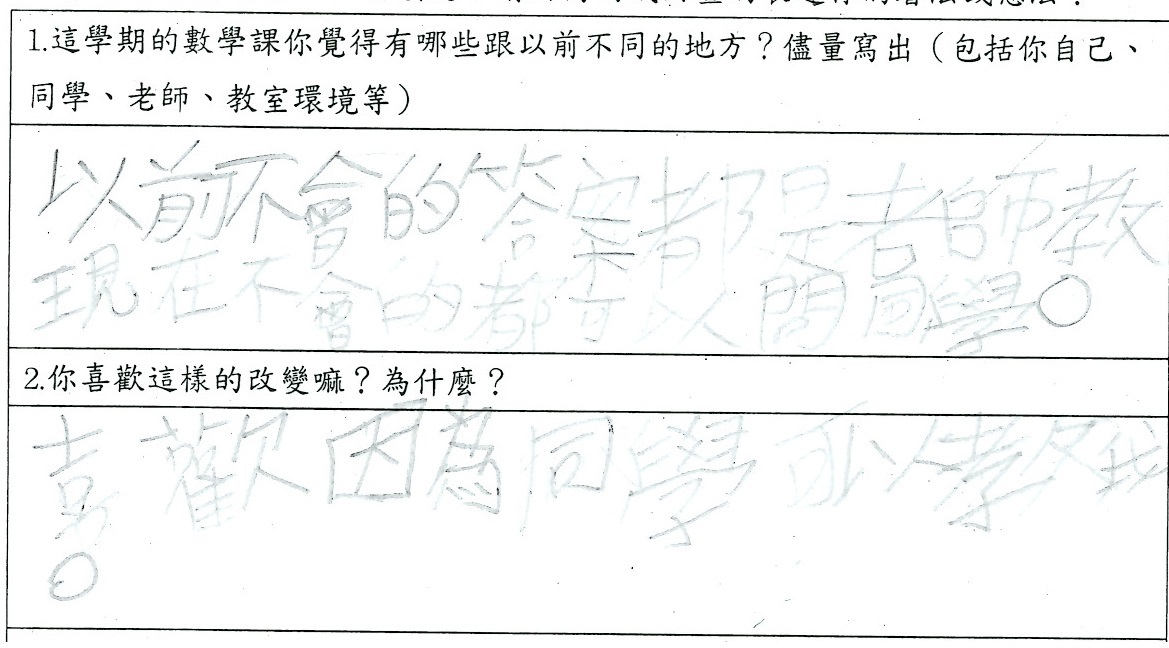 1.這學期的數學課你覺得有哪些跟以前不同的地方？儘量寫出（包括你自己、
同學、老師、教室環境等）
以前不會的答案都是老師教
現在不會的都可以問同學。
2.你喜歡這樣的改變嘛？為什麼？
喜歡因為同學可以教我
。